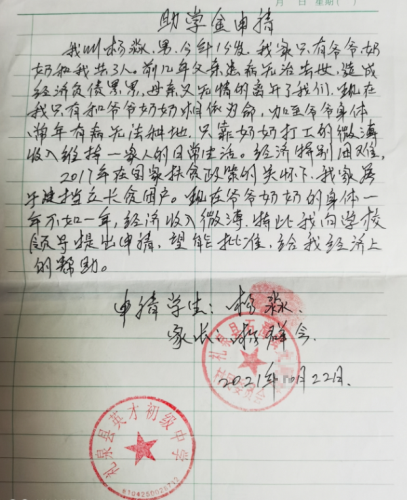 月 日 星期( )
助学金申请
我叫杨淼,男,今年15岁,我家只有爷爷,奶
奶和我共3人。前几年父亲患病无治去世,造成
经济负债累累,母亲又无情的离开了我们。现在
我只有和爷爷奶奶相依为命,加至爷爷身体
常年有病无法种地,只靠奶奶打工的微薄
收入维持一家人的日常生活。经济特别困难,
2017年在国家扶贫政策的关怀下,我家享
建档立长贫困户。现在爷爷奶奶的身体一
年不如一年,经济收入微薄,特此我向学校
领导提出申请,望能批准,给我经济上
的帮助。
申请学生:杨淼
家长:杨群会
2021年 月22日.
礼泉县
委员会
礼泉县英才初级中学